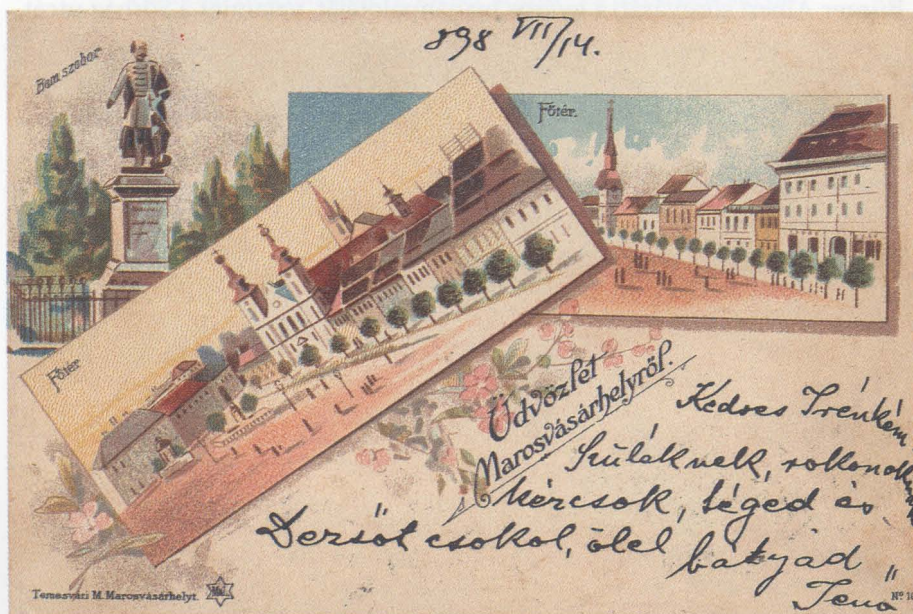 898 VII/14.
Bem szobor
Főtér.
Főtér
Üdvözlet
Marosvásárhelyről.
Kedves Irénkém
Szüléknek, rokonok
kézcsok, téged és
Dezsőt csokol, ölel
bátyád
Jenő
Temesvári M. Marosvásárhelyt.
Nº 10